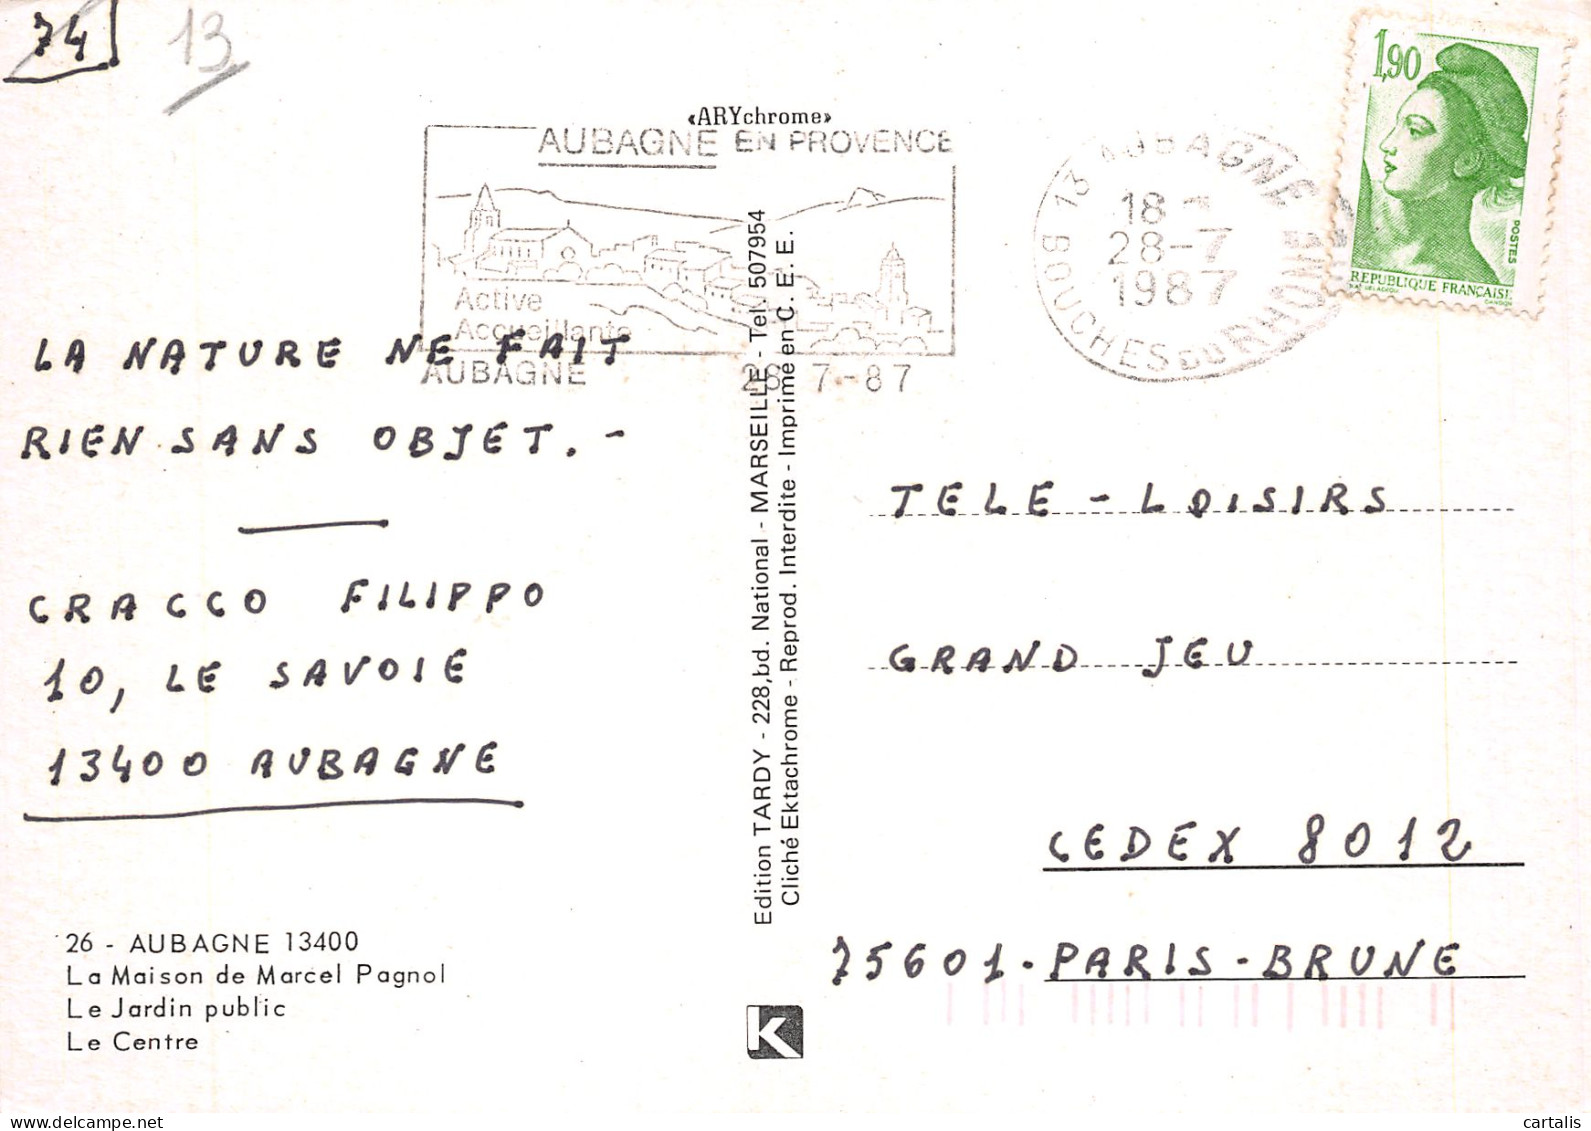 74
13
«ARYchrome»
AUBAGNE EN PROVENCE
Active
Accueillante
AUBAGNE 28-7-87
13 AUBAGNE
18
28-7
1987
BOUCHES DU RHONE
1,90
POSTES
REPUBLIQUE FRANÇAISE
LA NATURE NE FAIT
RIEN SANS OBJET. -
CRACCO FILIPPO
10, LE SAVOIE
13400 AUBAGNE
26 - AUBAGNE 13400
La Maison de Marcel Pagnol
Le Jardin public
Le Centre
Edition TARDY - 228,bd. National - MARSEILLE - Tel. 507954
Cliché Ektachrome - Reprod. Interdite - Imprimé en C. E. E.
K
TELE - LOISIRS
GRAND JEU
CEDEX 8012
75601. PARIS - BRUNE
cartalis